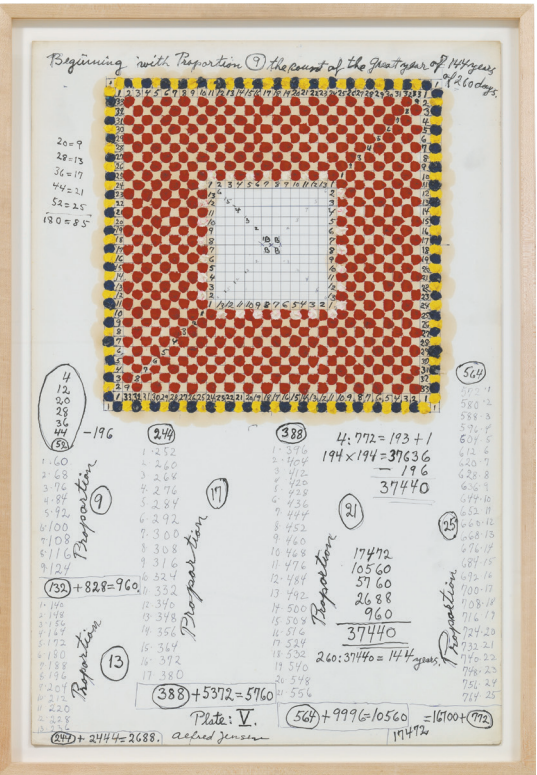 Beginning with Proportion 9 the count of the great year of 144 years
of 260 days.
1 2 3 4 5 6 7 8 9 10 11 12 13 1
B B
B B
1 13 12 11 10 9 8 7 6 5 4 3 2 1
20=9
28=13
36=17
44=21
52=25
180=85
4
12
20
28
36
44
52
-196
1-60
2-68
3-76
4-84
5-92
6-100
7-108
8-116
9-124
Proportion
9
132+828=960
1-140
2-148
3-156
4-164
5-172
6-180
7-188
8-196
9-204
10-212
11-220
12-228
Proportion
13
244+2444=2688.
244
1-252
2-260
3-268
4-276
5-284
6-292
7-300
8-308
9-316
10-324
11-332
12-340
13-348
14-356
15-364
16-372
17-380
Proportion
17
388+5372=5760
Plate: V.
Alfred Jensen
388
1-396
2-404
3-412
4-420
5-428
6-436
7-444
8-452
9-460
10-468
11-476
12-484
13-492
14-500
15-508
16-516
17-524
18-532
19-540
20-548
21-556
Proportion
21
4:772=193+1
194x194=37636
-196
37440
17472
10560
5760
2688
960
37440
260:37440=144 years.
564+9996=10560
564
572-1
580-2
588-3
596-4
604-5
612-6
620-7
628-8
636-9
644-10
652-11
660-12
668-13
676-14
684-15
692-16
700-17
708-18
716-19
724-20
732-21
740-22
748-23
756-24
764-25
Proportion
25
=16700+772
17472